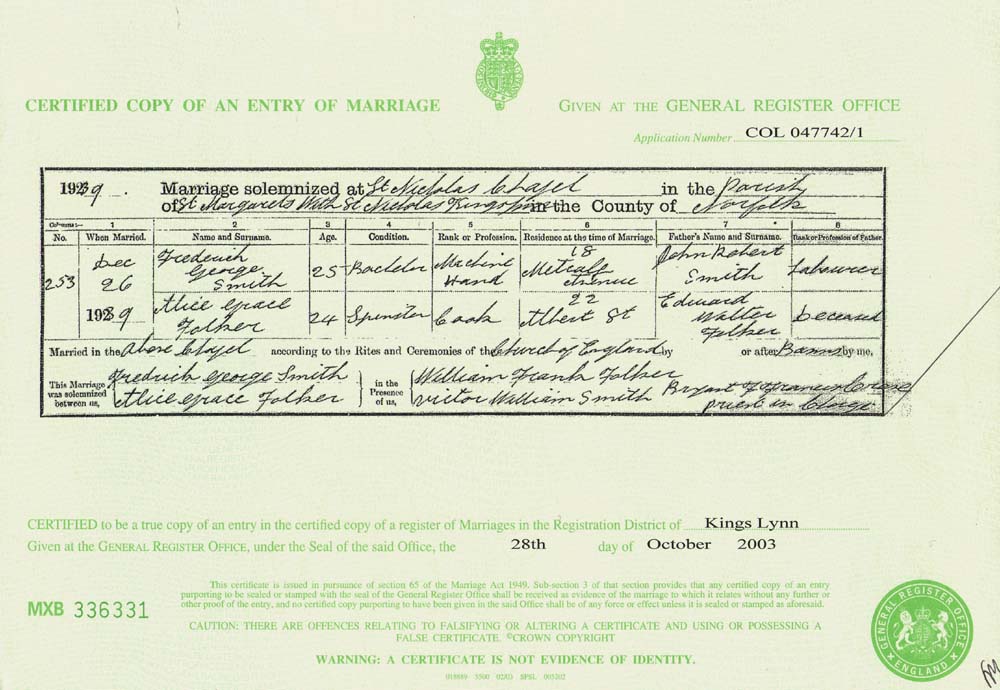 CERTIFIED COPY OF AN ENTRY OF MARRIAGE
GIVEN AT THE GENERAL REGISTER OFFICE
Application Number COL 047742/1
1939. Marriage solemnized at St Nicholas Chapel in the Parish
of St Margarets With St Nicholas Kings Lynn in the County of Norfolk
Columns:— 1 2 3 4 5 6 7 8
No. When Married. Name and Surname. Age. Condition. Rank or Profession. Residence at the time of Marriage. Father's Name and Surname. Rank or Profession of Father.
253 Dec 26 1939 Frederick George Smith 25 Bachelor Machine Hand 18 Metcalf Avenue John Robert Smith Labourer
Alice Grace Folker 24 Spinster Cook 22 Albert St Edward Walter Folker Deceased
Married in the Above Chapel according to the Rites and Ceremonies of the Church of England by or after Banns by me,
This Marriage was solemnized between us, Fredrick George Smith Alice Grace Folker in the Presence of us, William Frank Folker Victor William Smith Priest in Charge
CERTIFIED to be a true copy of an entry in the certified copy of a register of Marriages in the Registration District of Kings Lynn
Given at the GENERAL REGISTER OFFICE, under the Seal of the said Office, the 28th day of October 2003
This certificate is issued in pursuance of section 65 of the Marriage Act 1949. Sub-section 3 of that section provides that any certified copy of an entry
purporting to be sealed or stamped with the seal of the General Register Office shall be received as evidence of the marriage to which it relates without any further or
other proof of the entry, and no certified copy purporting to have been given in the said Office shall be of any force or effect unless it is sealed or stamped as aforesaid.
MXB 336331
CAUTION: THERE ARE OFFENCES RELATING TO FALSIFYING OR ALTERING A CERTIFICATE AND USING OR POSSESSING A
FALSE CERTIFICATE. ©CROWN COPYRIGHT
WARNING: A CERTIFICATE IS NOT EVIDENCE OF IDENTITY.
GENERAL REGISTER OFFICE
ENGLAND